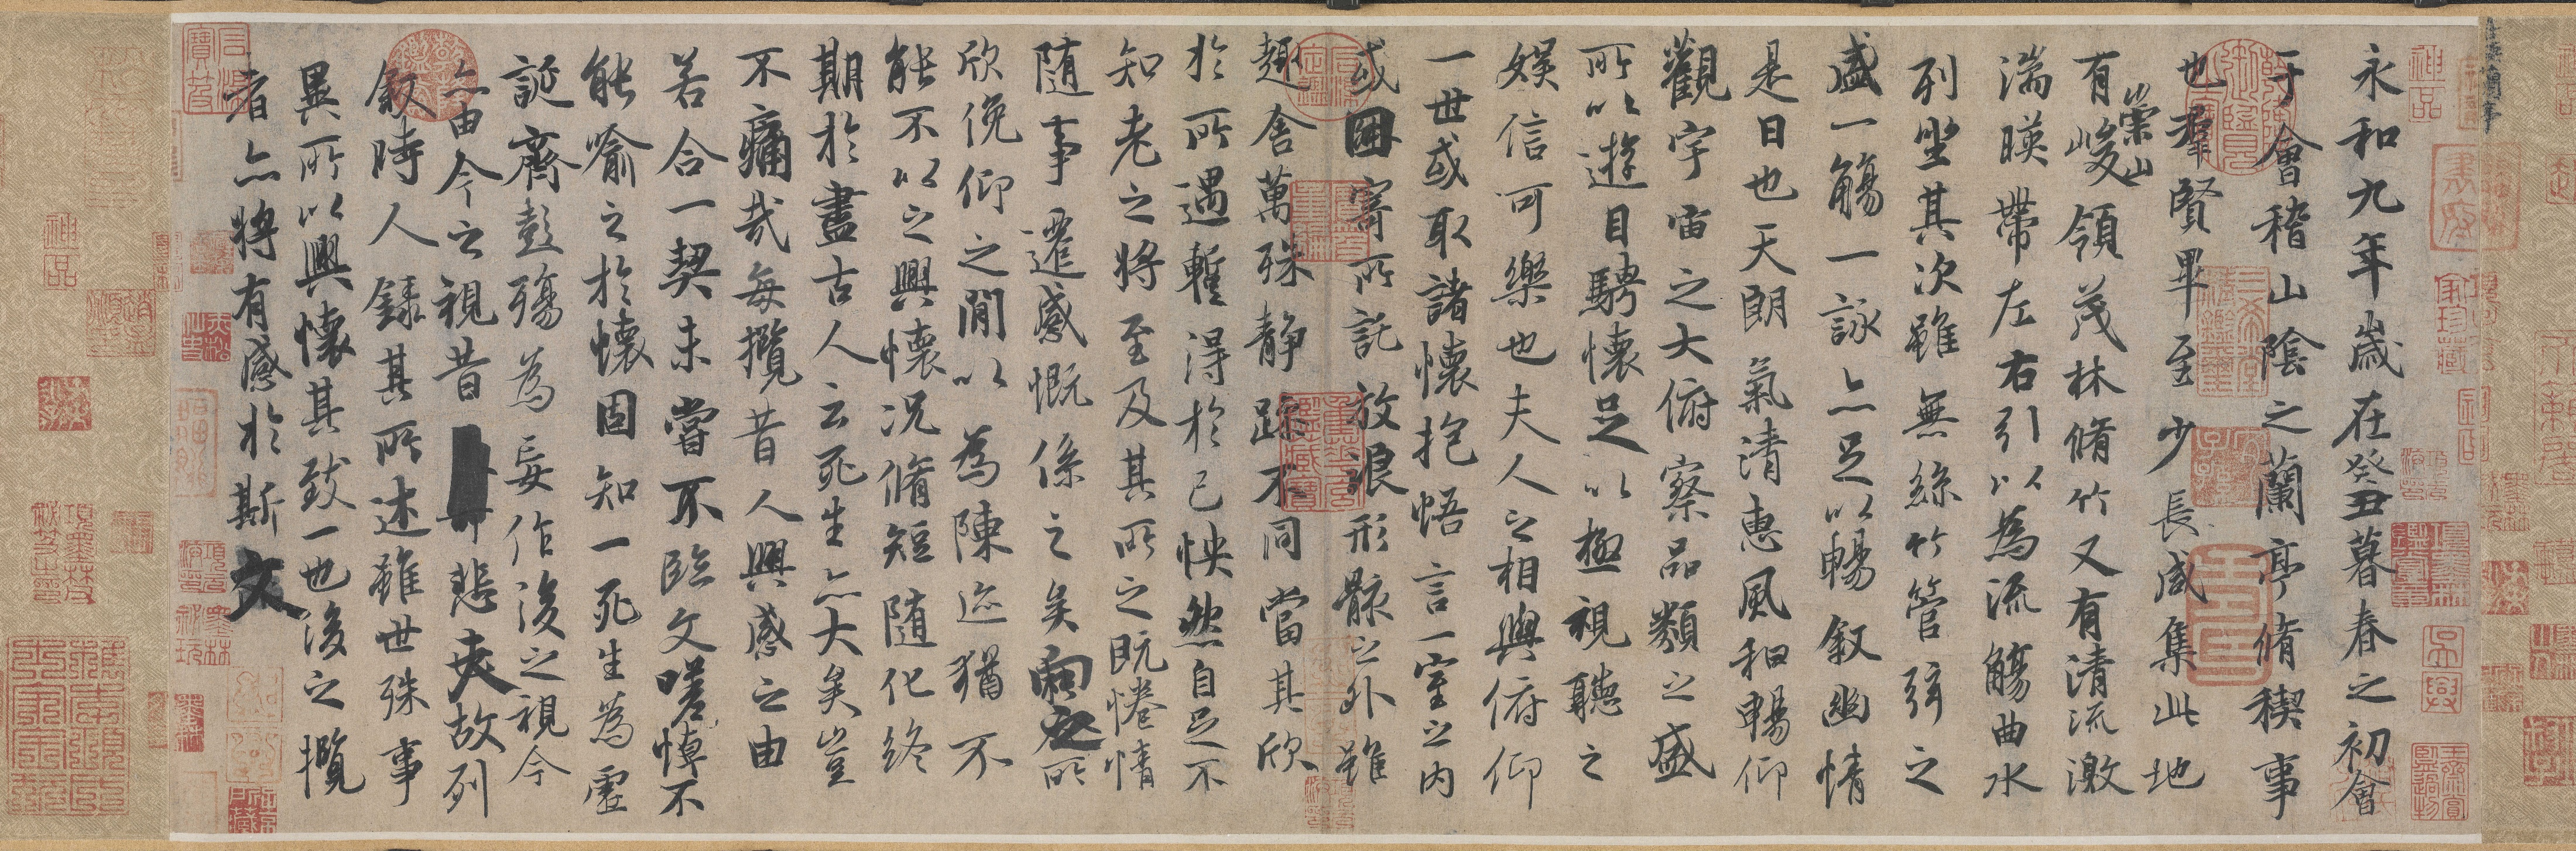 永和九年歲在癸丑暮春之初會
于會稽山陰之蘭亭脩稧事
也群賢畢至少長咸集此地
有崇山峻領茂林脩竹又有清流激
湍暎帶左右引以為流觴曲水
列坐其次雖無絲竹管弦之
盛一觴一詠亦足以暢敘幽情
是日也天朗氣清惠風和暢仰
觀宇宙之大俯察品類之盛
所以遊目騁懷足以極視聽之
娛信可樂也夫人之相與俯仰
一世或取諸懷抱悟言一室之內
或因寄所託放浪形骸之外雖
趣舍萬殊靜躁不同當其欣
於所遇蹔得於己怏然自足不
知老之將至及其所之既惓情
隨事遷感慨係之矣向之所
欣俛仰之閒以為陳迹猶不
能不以之興懷況脩短隨化終
期於盡古人云死生亦大矣豈
不痛哉每攬昔人興感之由
若合一契未嘗不臨文嗟悼不
能喻之於懷固知一死生為虛
誕齊彭殤為妄作後之視今
亦由今之視昔悲夫故列
敘時人錄其所述雖世殊事
異所以興懷其致一也後之攬
者亦將有感於斯文
神品
神品